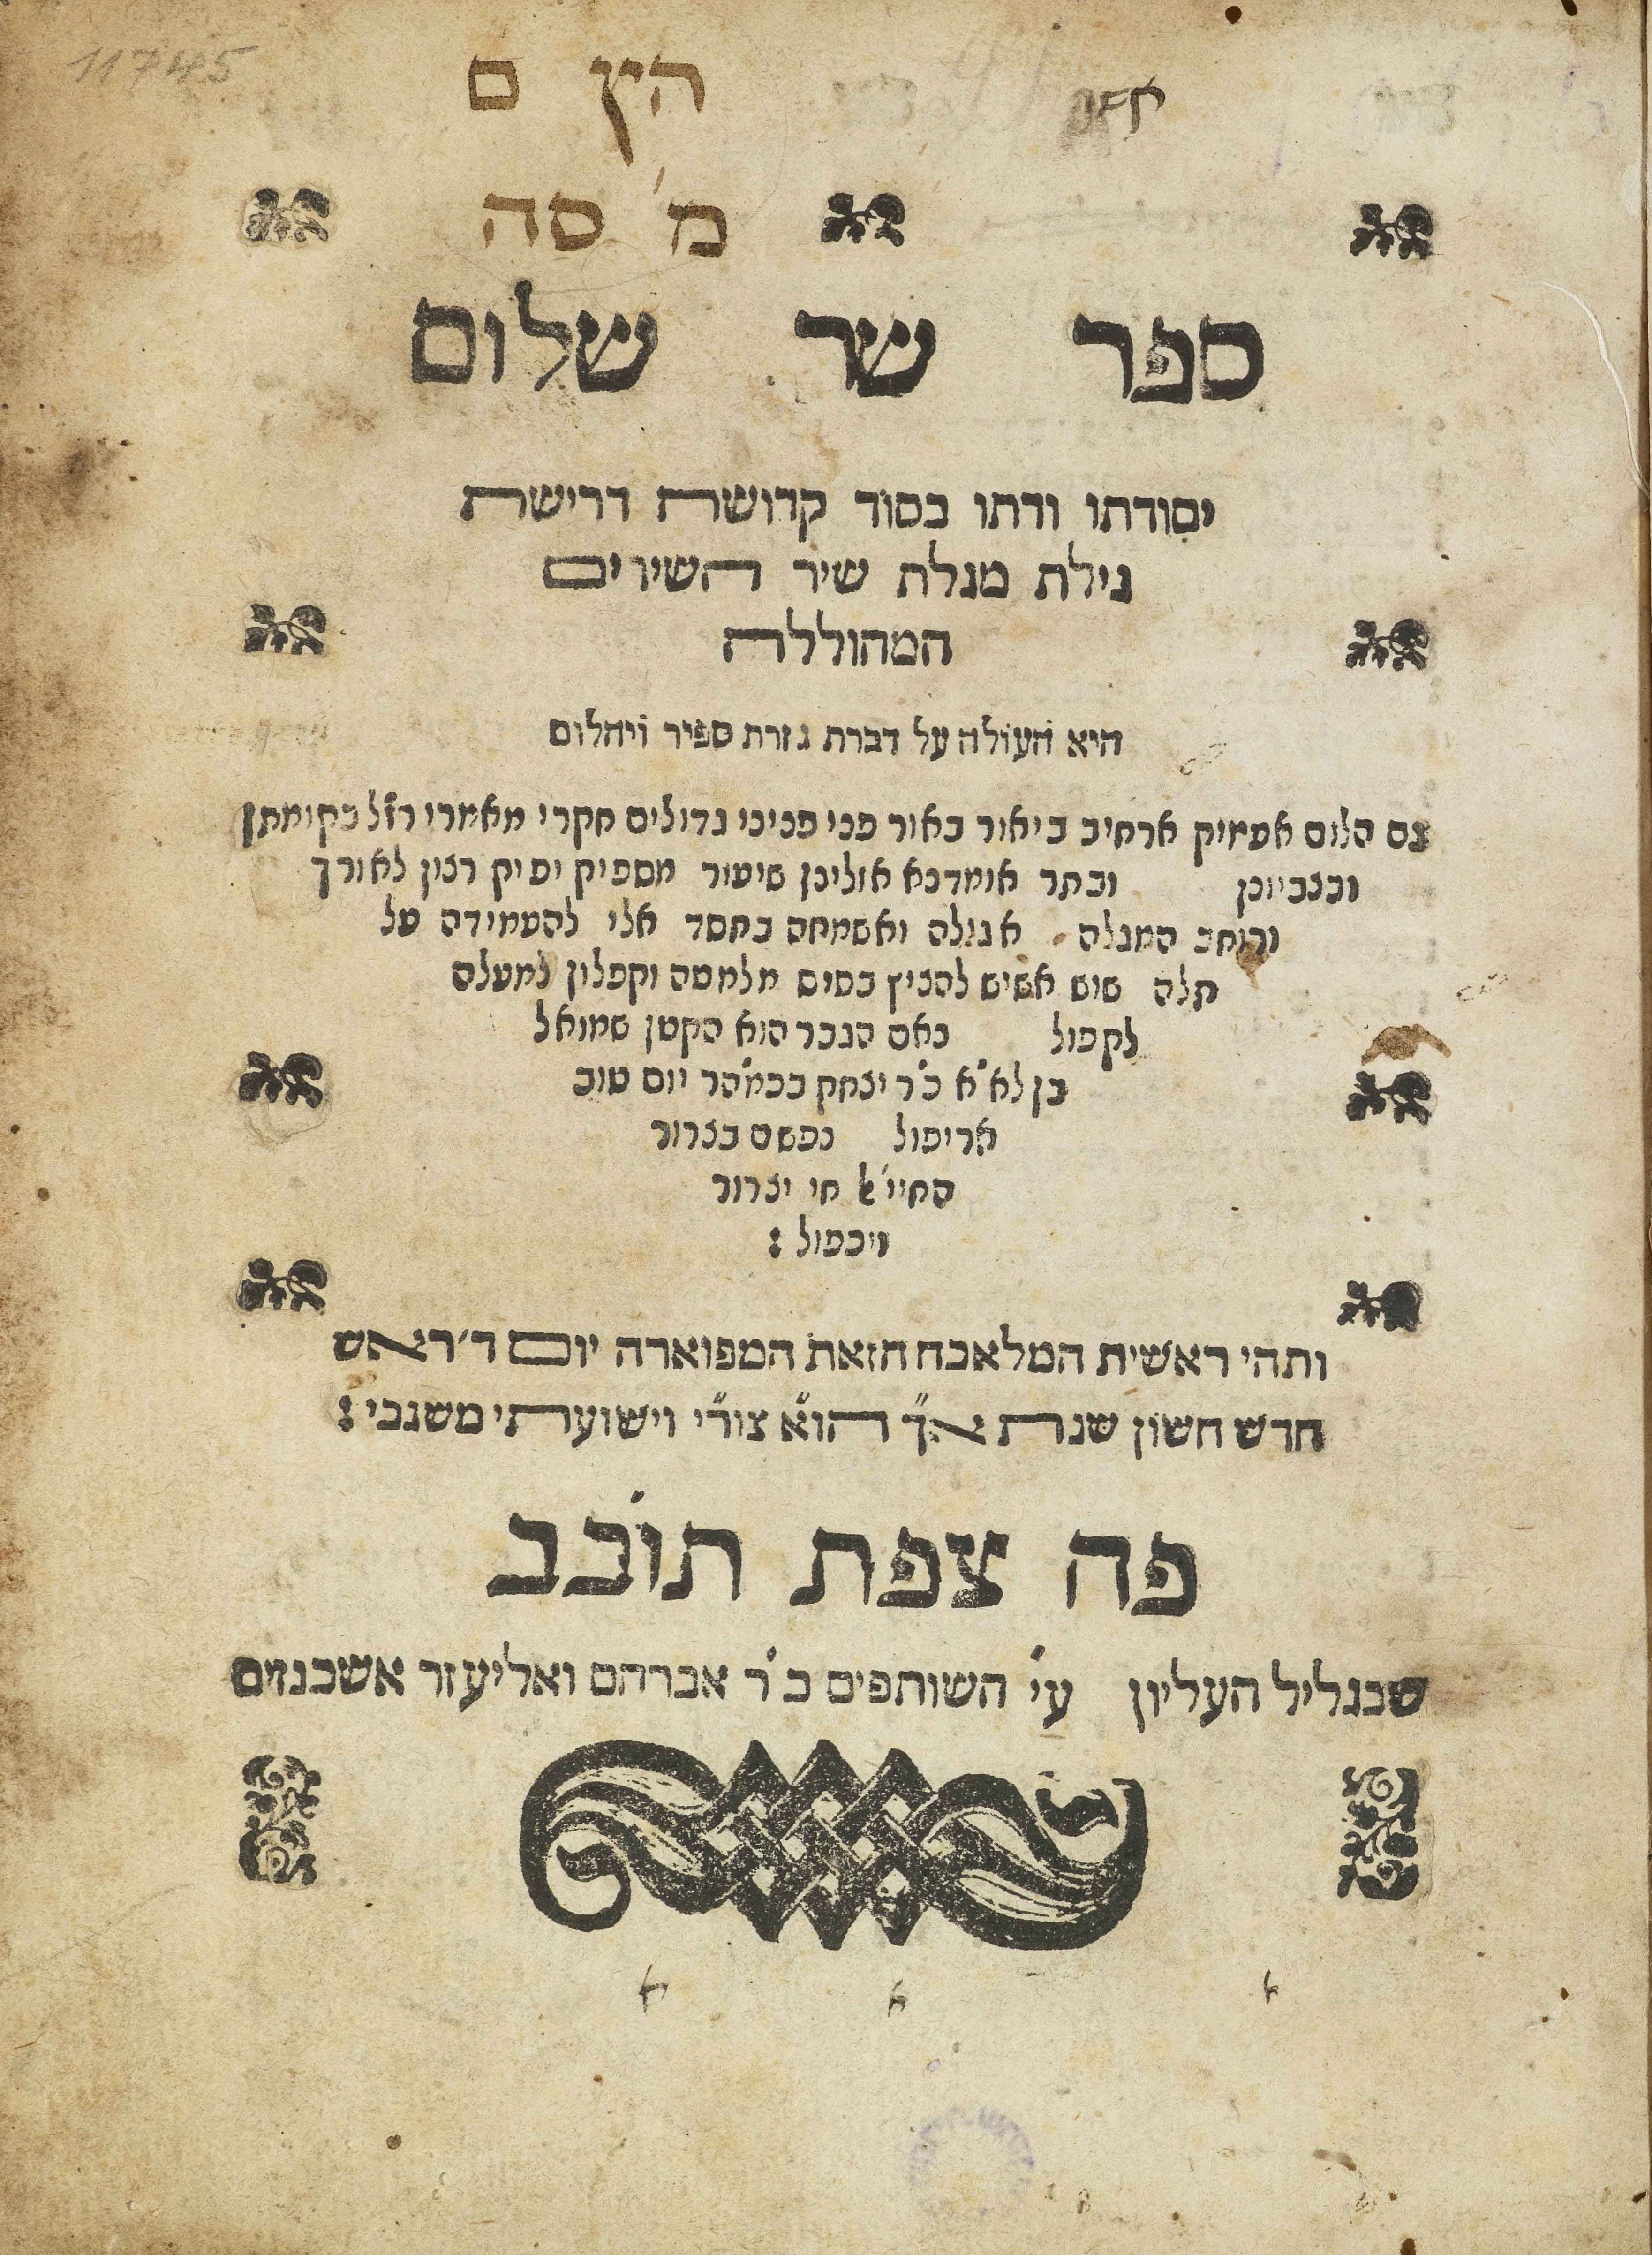 11745
הין ם
מ׳ סה
ספר שר שלום
יסודתו ודתו בסוד קדושת דרישת
גילת מגלת שיר השירים
המהוללה
היא העולה על דברת גזרת ספיר ויהלום
גם הלום אעמיק ארחיב ביאור באור פני פנינים גדולים חקרי מאמרי רז״ל בקומתן
ובצביונן ובתר אומדנא אזלינן שיעור מספיק יפיק רצון לאורך
ורוחב המגלה אגילה ואשמחה בחסד אלי להעמידה על
תלה שוש אשיש להניץ בסים מלמטה וקפלון למעלה
לקפול נאם הגבר הוא הקטן שמואל
בן לא״א כ״ר יצחק בכמה״ר יום טוב
אריפול נפשם בצרור
החיי׳ אל חי יצרור
ויכפול :
ותהי ראשית המלאכה הזאת המפוארה יום ד׳ ראש
חדש חשון שנת אך הוא צורי וישועתי משגבי :
פה צפת תובב
שבגליל העליון ע״י השותפים כ״ר אברהם ואליעזר אשכנזים
א א א